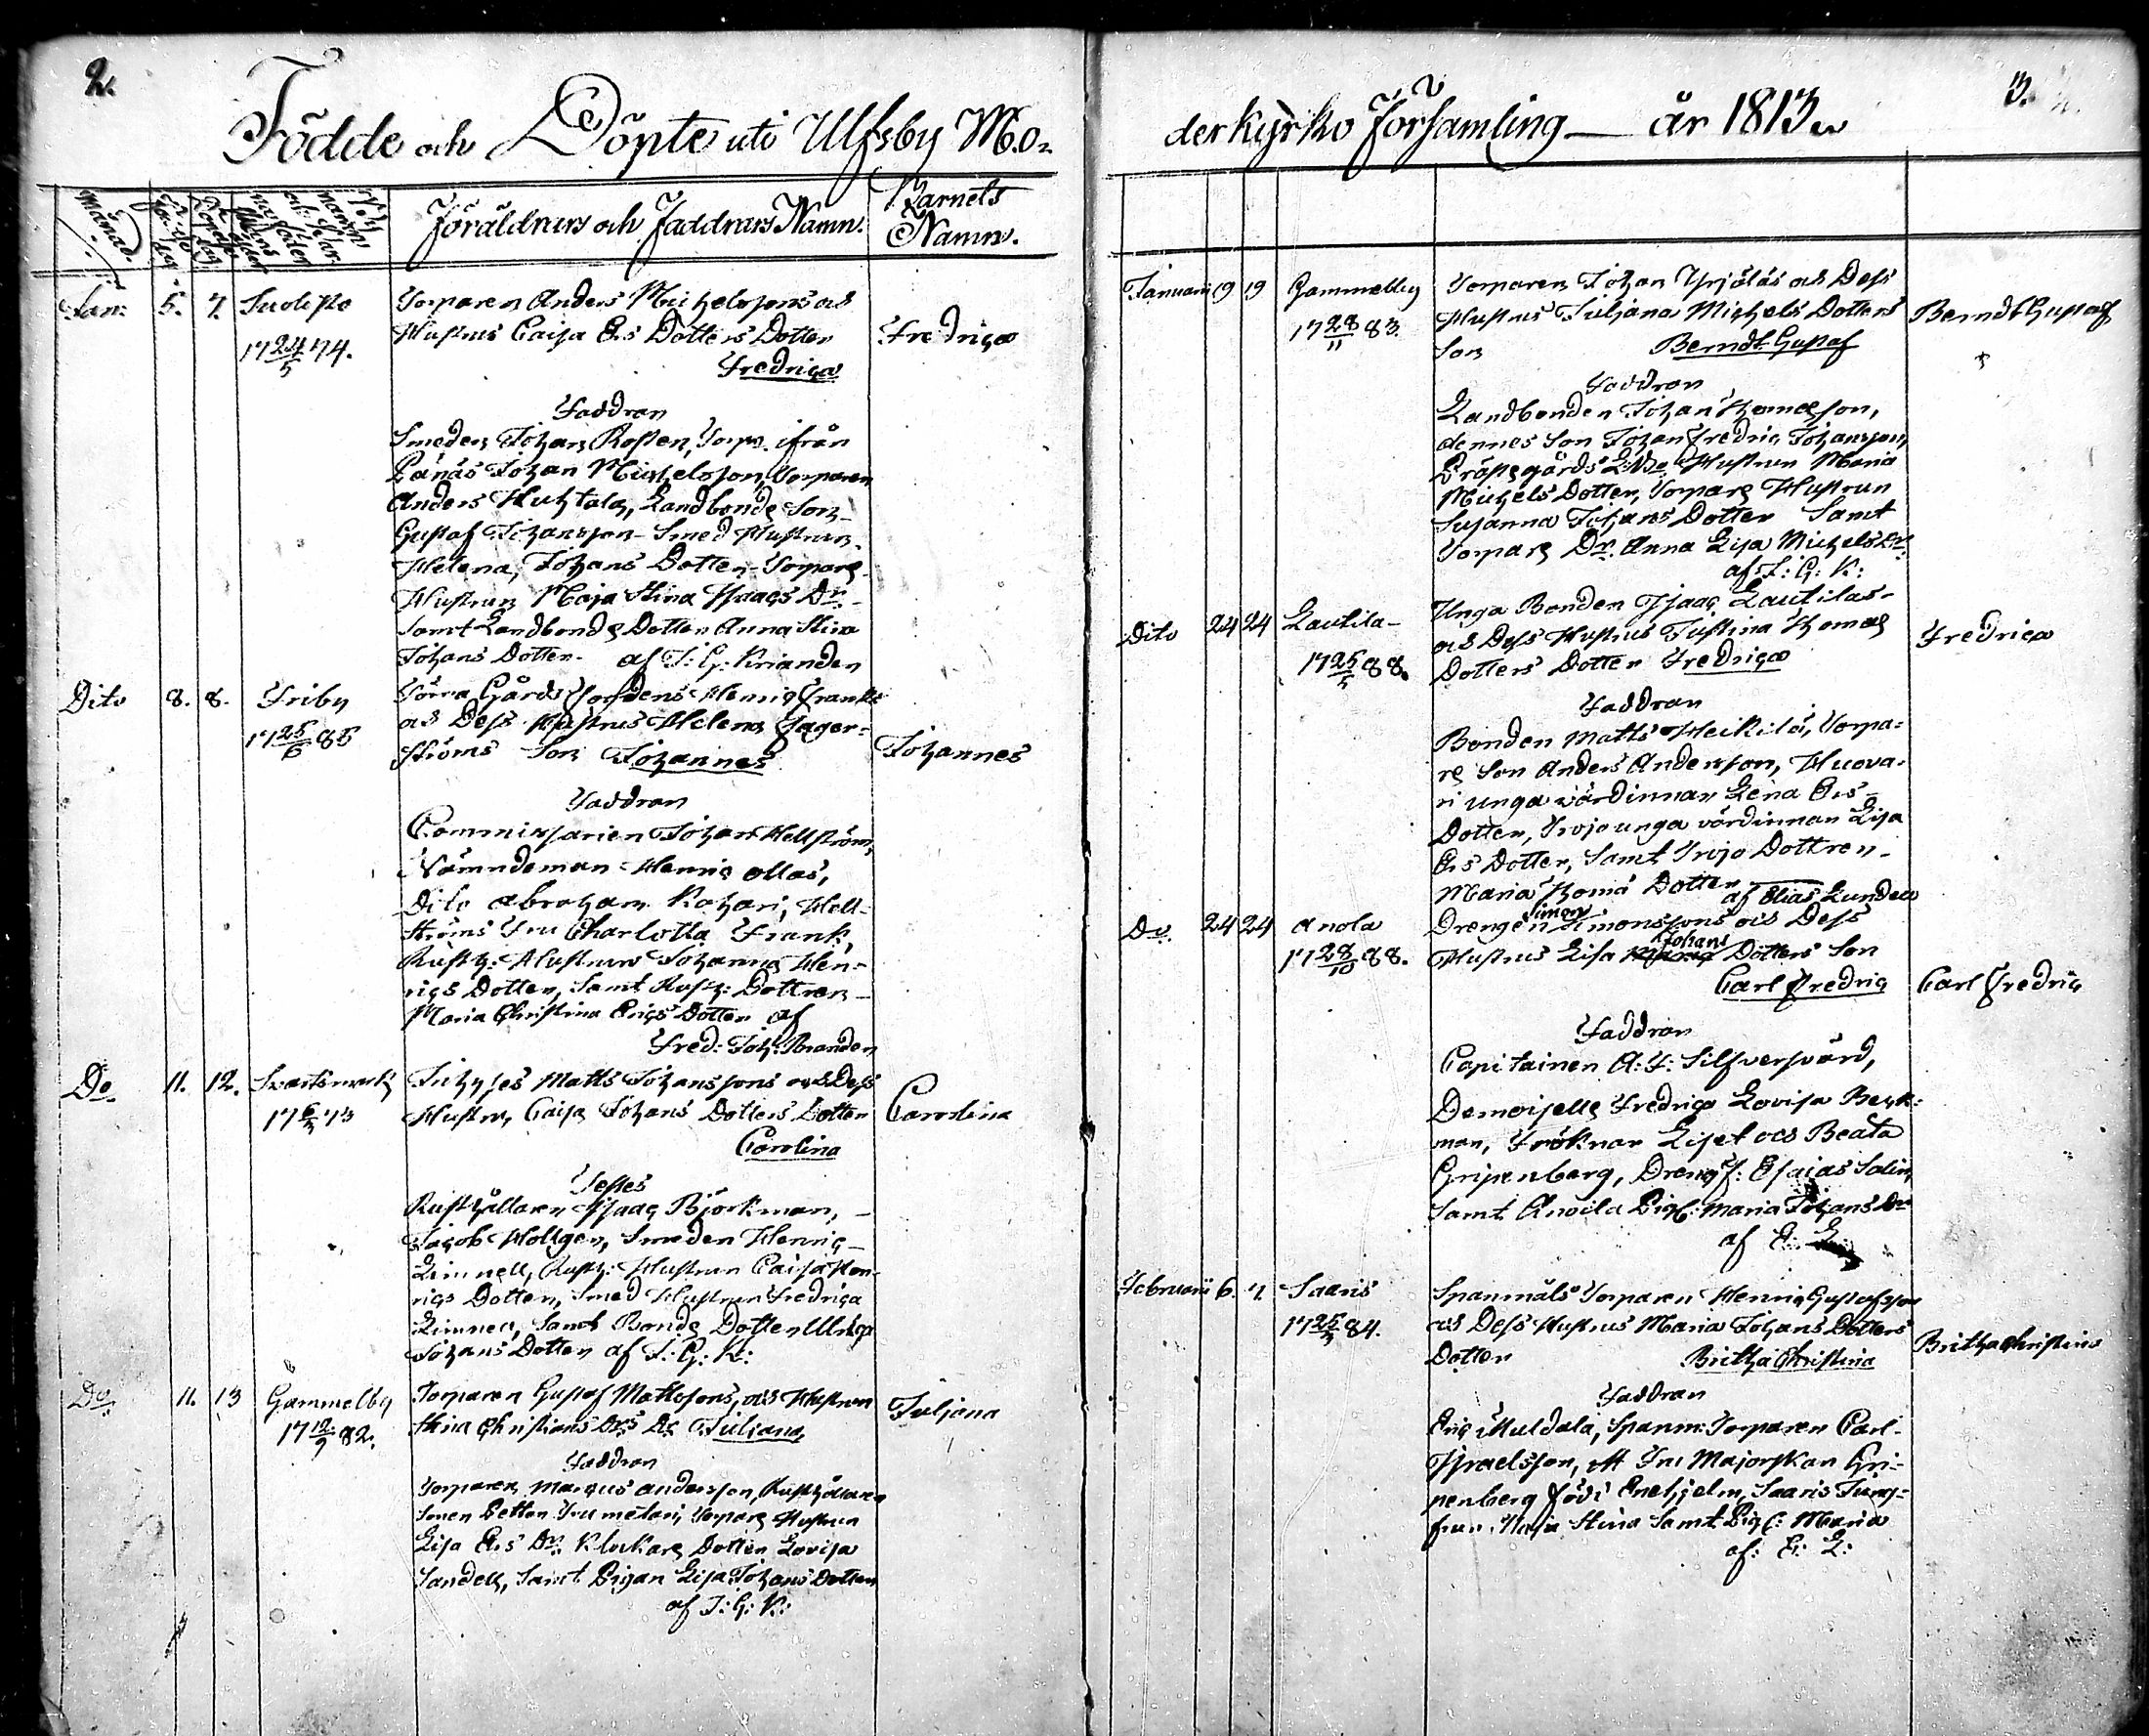 2.
Födde och Döpte uti Ulfsby Mo-
Månad.
Föräldrars och Faddrars Namn.
Barnets
Namn.
Jan: 5. 7. Suolisto
17 24/5 74.
Torparen Anders Michelssons och
Hustrus Caisa Ers Dotters Dotter
Fredrica
Fredrica
Faddran
Smeden Johan Rosten, Torp. ifrån
Johan Michelsson, Torparen
Anders Huhtala, Landbonde Son
Gustaf Johansson Smed Hustrun
Helena, Johans Dotter, Torpare
Hustrun Maja Stina Isaacs Dr
samt Landbonde Dotter Anna Stina
Johans Dotter. af J: G: Kriander
Dito 8. 8. Friby
17 25/6 85
Gårds Henric Franks
och Dess Hustrus Helena Fager-
ströms Son Johannes
Johannes
Faddran
Commissarien Johan Hellström,
Nämndeman Henric ollas,
Dito Abraham Kahari, Hell-
ströms Fru Charlotta Frank,
Rusth: Hustrun Johanna Hen-
rics Dotter, Samt Rusth: Dottren
Maria Christina Erics Dotter af
Fred: Joh: Brander
Do. 11. 12. Svartsmark
17 6/5 73
Matts Johanssons och Dess
Hustru, Caisa Johans Dotters Dotter
Carolina
Carolina
Testes
Rusthållaren Isaac Björkman,
Jacob Holtger, Smeden Henric
Linnell, Rusth: Hustrun Caisa Hen-
rics Dotter, Smed Hustrun Fredrica
Linnell, Samt Bonde Dotter Ulrica
Johans Dotter af J: G: K:
Do. 11. 13 Gammelby
17 12/9 82.
Torparen Gustaf Mattssons, och Hustrun
Stina Christians Drs Dr Juliana
Juljana
Faddran
Torparen Marcus Andersson, Rusthållaren
Sonen Petter Torpare Hustrun
Lisa Ers Dr. Klockare Dotter Lovisa
Sandell, Samt Pigan Lisa Johans Dotter
af J: G: K:
3.
derkyrko Församling — år 1813
Januari 19 19 Gammelby
17 28/11 83.
Torparen Johan Yrjölas och Dess
Hustrus Juliana Michels Dotters
Son Berndt Gustaf
Berndt Gustaf
Faddran
Landbonden Johan Thomasson,
dennes Son Johan Fredric Johansson,
Hustrun Maria
Michels Dotter, Torpare Hustrun
Susanna Johans Dotter Samt
Torpare Dr. Anna Lisa Michels Dr.
af J: G: K:
Dito 24 24 Lautila
17 25/5 88.
Unga Bonden Isaac Lautilas
och Dess Hustrus Justina Thomas
Dotters Dotter Fredrica
Fredrica
Faddran
Bonden Matts Heikilä, Torpa-
re Son Anders Andersson, Huova-
ri unga värdinnan Lena Ers
Dotter, Irvjo unga värdinnan Lisa
Ers Dotter, Samt Irvjo Dottren
Maria Thoma Dotter af Elias Lunden
Do. 24 24 Anola
17 28/10 88.
Drengen Simon Simonssons och Dess
Hustrus Lisa Johans Dotters Son
Carl Fredric
Carl Fredric
Faddran
Capitainen A: F: Silfversvärd,
Demoiselle Fredrica Lovisa Beck-
man, Fröknar Liset och Beata
Gripenberg, Dreng J: Esaias Salin,
Samt Anvila Pig: Maria Johans Dr
af E: L:
Februarii 6. 7. Saaris
17 25/3 84.
Spanmåls Torparen Henric Gustafsson
och Dess Hustrus Maria Johans Dotters
Dotter Britha Christina
Britha Christina
Faddran
Eric Muldala, Spanm: Torparen Carl
Israelsson, Fru Majorskan Gri-
penberg född Enehjelm, Saaris Jung-
frun Maja Stina Samt Pig: Maria
af: E: L: